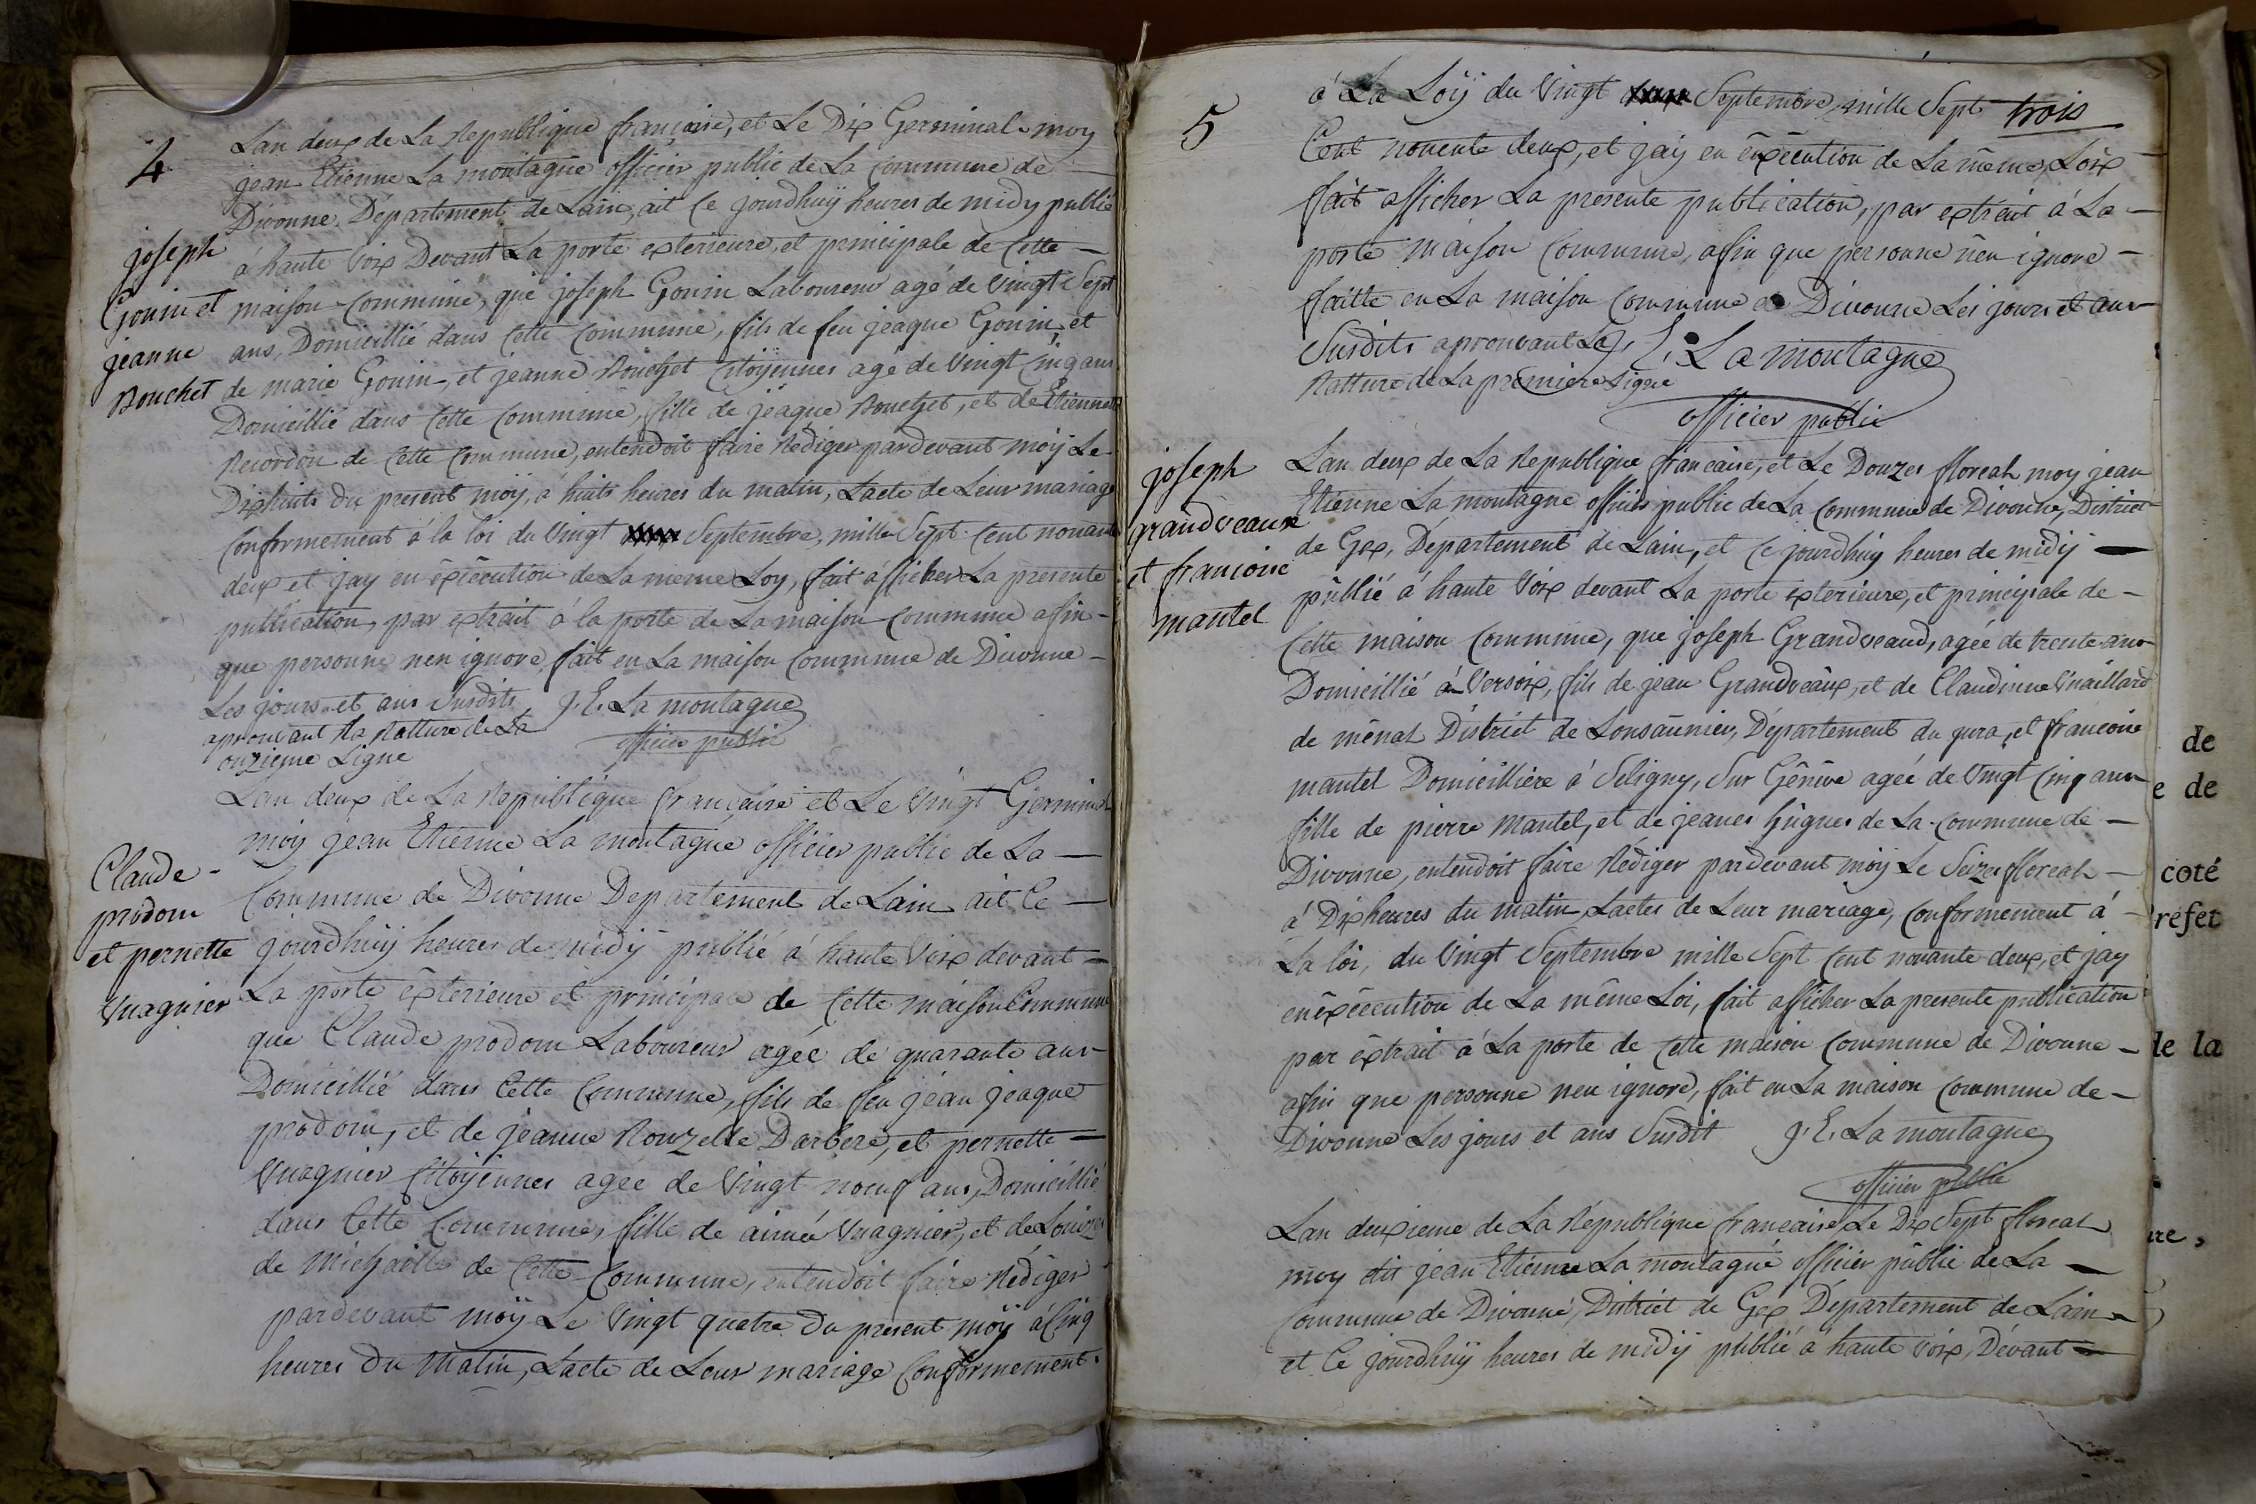 4
Lan deux de La Republique françoise, et Le Dix Germinal moy
jean Etienne La montagne officier public de La Commune de
Divonne Département de Lain, ait Ce jourdhuÿ heures de midy publié
á haute Voix Devant La porte exterieure, et principale de Cette
joseph
Gonin et
jeanne
Bouchet
maison Commune, que joseph Gonin Laboureur agé de Vingt Sept
ans, Domicillié dans Cette Commune, fils de feu jeaque Gonin et
de marie Gonin, et jeanne Bouchet Citoÿennes agé de Vingt Cinq ans
Domicillié dans Cette Commune, fille de jeaque Bouchet, et de Etiennette
Recordon de Cette Commune, entendoit faire Rédiger pardevant moÿ Le
Dixhuits du present moÿ, á huits heures du matin, Lacte de Leur mariage
Conformement á la loi du Vingt Septembre, mille Sept Cent nonante
deux et jay en éxécution de La meme Loy, fait afficher La presente
publication, par extrait á la porte de La maison Commune afin
que personne nen ignore, fait en La maison Commune de Divonne
Les jours et ans Susdits J. E. La montagne
aprouvant La Ratture de La
onzieme Ligne
officier public
Lan deux de La Republique française et Le Vingt Germinal
moÿ jean Etienne La montagne officier public de La
Claude
prodom
et pernette
Vuagnier
Commune de Divonne Departement de Lain ait Ce
jourdhuÿ heures de midÿ publié á haute Voix devant
La porte éxterieure et principale de Cette maison Commune
que Claude prodom Laboureur agée de quarante ans
Domicillié dans Cette Commune, fils de feu jean jeaque
prodom, et de jeanne Rouzette Darbere, et pernette
Vuagnier Citoÿennes agée de Vingt noeuf ans, Domicillié
dans Cette Commune, fille de aimé Vuagnier, et de Louize
de michaille de Cette Commune, entendoit faire Rédiger
pardevant moÿ Le Vingt quatre du present moÿ á Cinq
heures Du Matin, Lacte de Leur mariage Conformement
5
trois
á La Loÿ du Vingt Septembre, mille Sept
Cent nonente deux, et jaÿ en éxécution de La même Loix
fait afficher La presente publication, par extrait á La
porte maison Commune, affin que personne nen ignore
faitte en La maison Commune de Divonne Les jours et ans
Susdits aprouvant La
Ratture de La premiere Ligne
J. E. La montagne
officier public
joseph
grandveaux
et francoise
mantel
Lan deux de La Republique francaise, et Le Douzes floreal moy jean
Etienne La montagne officier public de La Commune de Divonne, District
de Gex, Département de Lain, et Ce jourdhuy heures de midÿ
publié á haute Voix devant La porte éxterieure, et principale de
Cette maison Commune, que joseph Grandveaud, agée de trente ans
Domicillié á Versoix, fils de jean Grandveaux, et de Claudinne Vuaillard
de ménal District de Lonsaunier, Département du jura, et francoise
mantel Domicilliére á Seligny, Sur Génève agée de Vingt Cinq ans
fille de pierre Mantel, et de jeanes hugues de La Commune de
Divonne, entendoit faire Rédiger pardevant moÿ Le Seizes floreal
á Dix heures du matin, Lactes de Leur mariage, Conformément á
La loi, du Vingt Septembre mille Sept Cent nonante deux, et jay
en éxécution de La même Loi, fait afficher La presente publication
par éxtrait á La porte de Cette maison Commune de Divonne
afin que personne nen ignore, fait en La maison Commune de
Divonne Les jours et ans Susdit J. E. La montagne
officier public
Lan deuxieme de La Republique francaise, Le Dix Sept floreal
moy dit jean Etienne La montagne officier public de La
Commune de Divonne, District de Gex Département de Lain
et Ce jourdhuÿ heures de midÿ publié á haute voix, Dévant
de
e de
coté
réfet
de la
re,